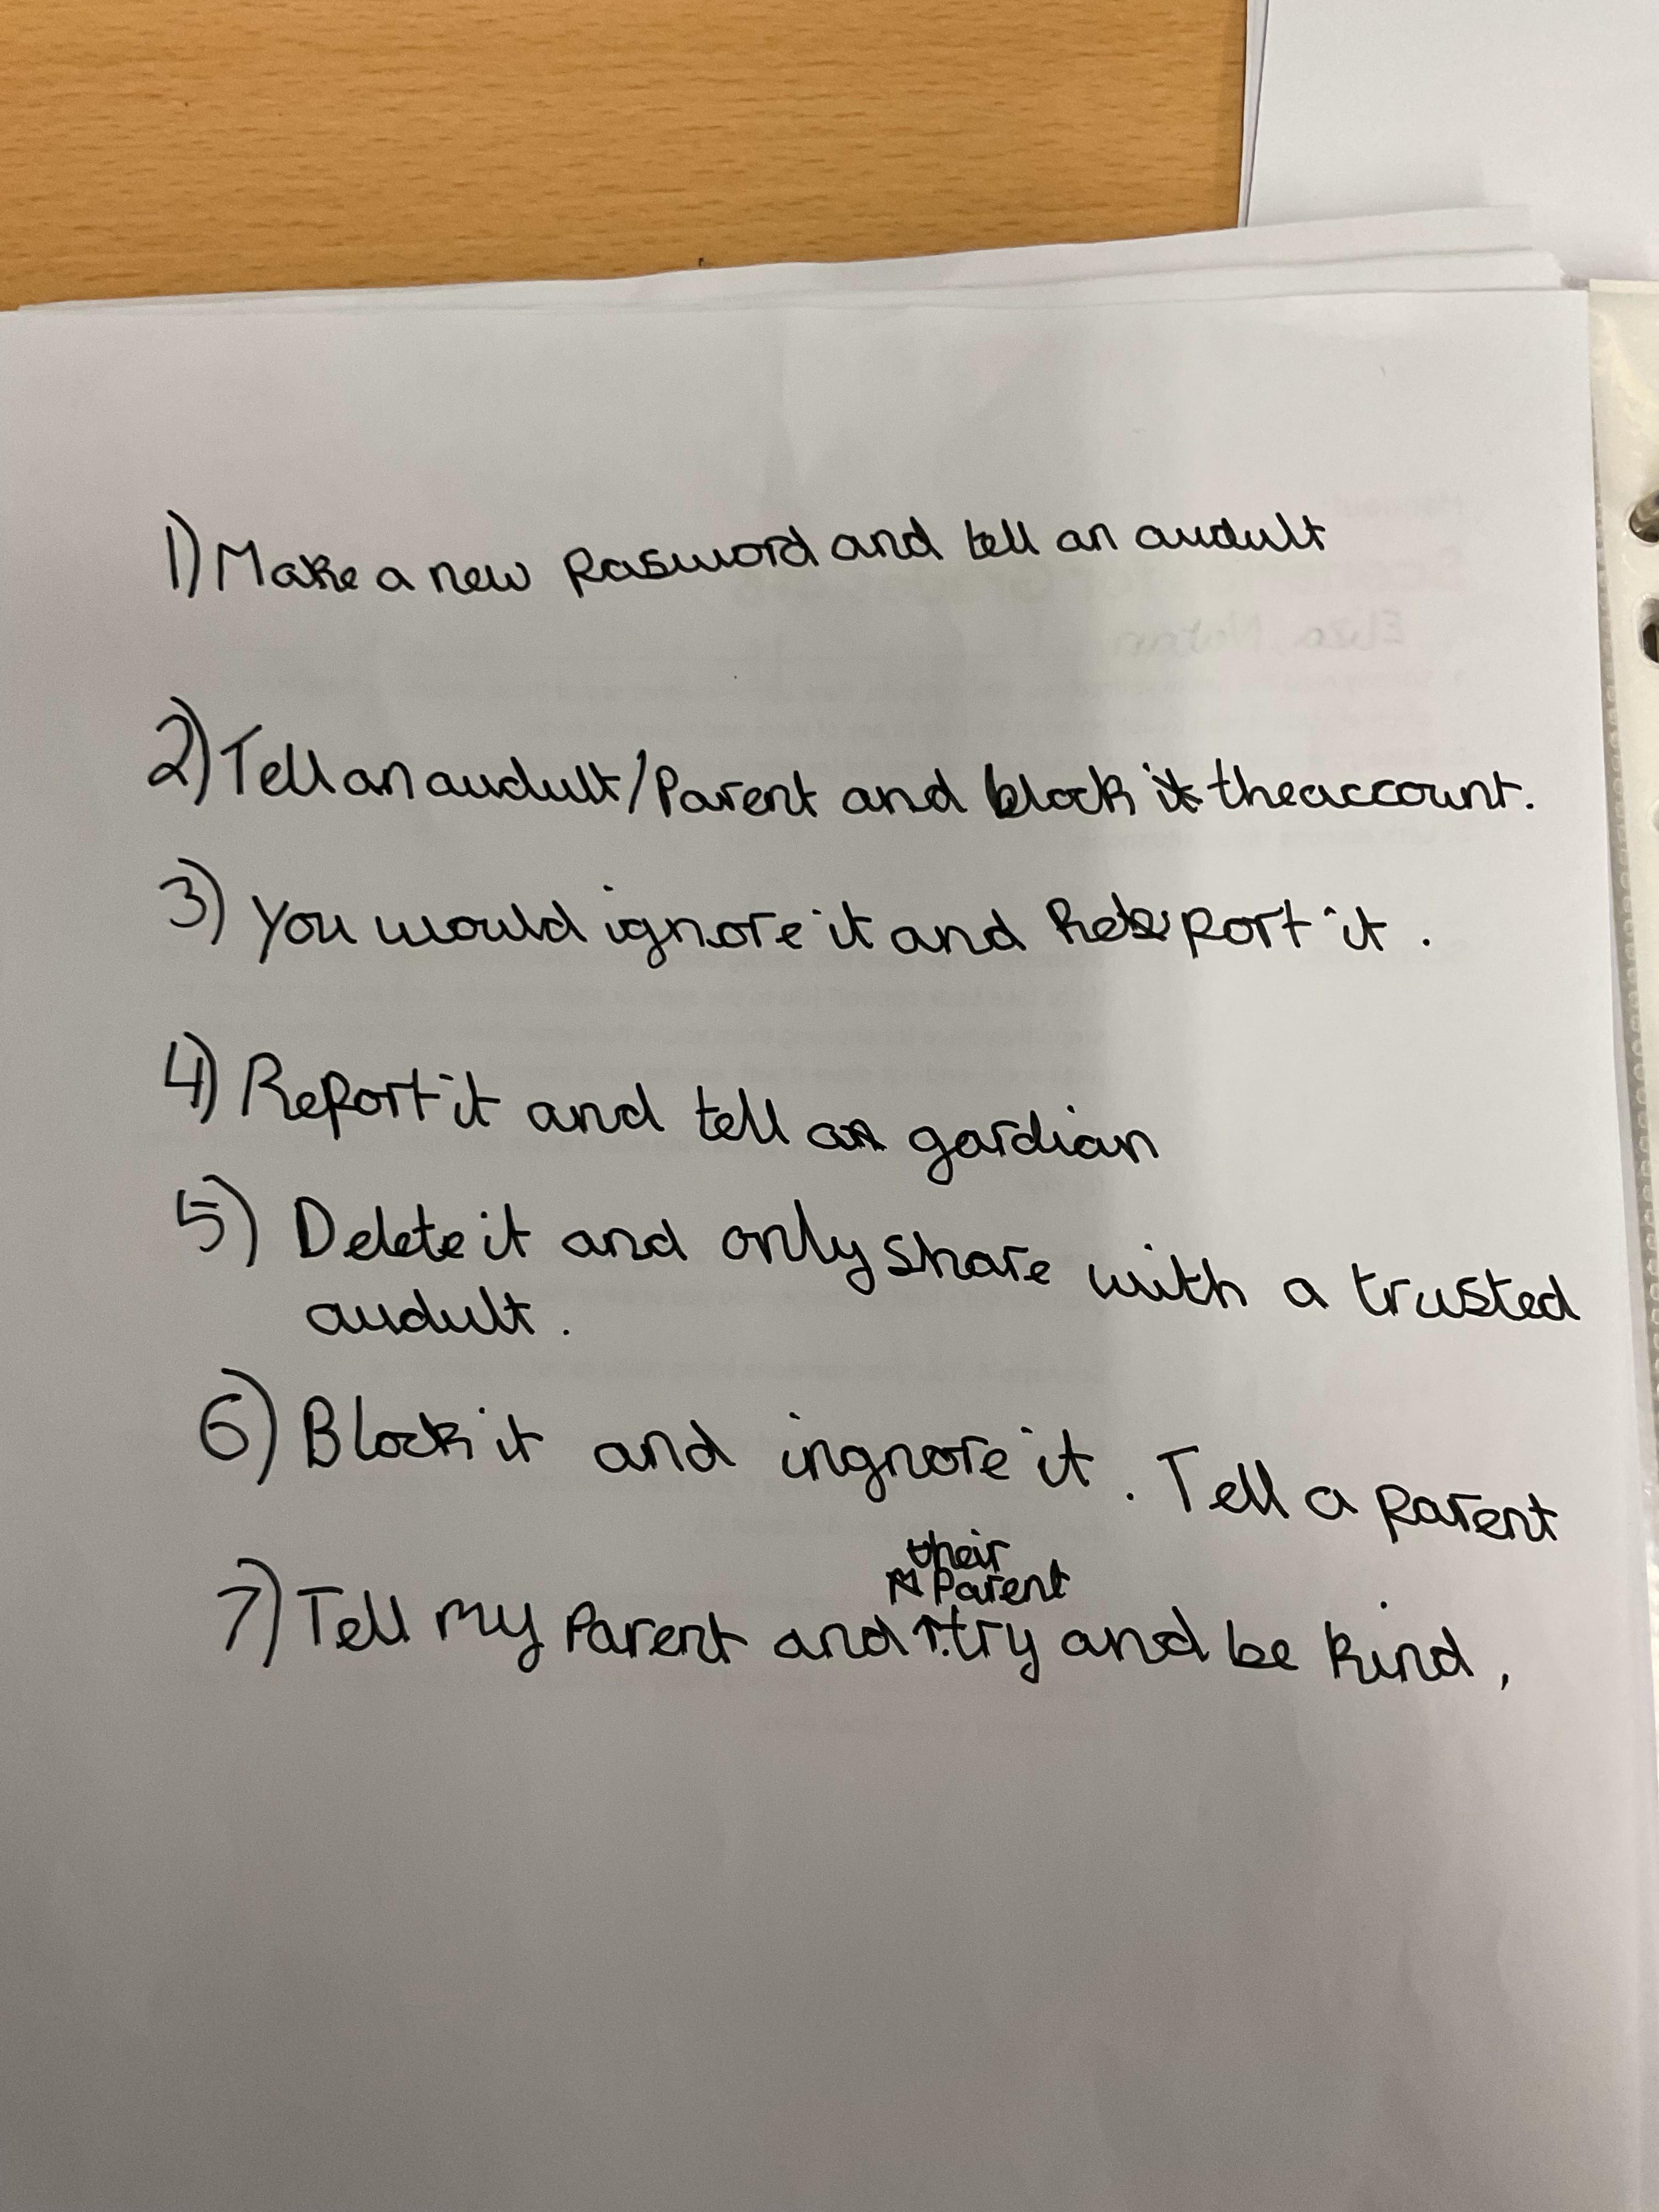 1) Make a new pasword and tell an audult
2) Tell an audult/Parent and block it the account.
3) You would ignore it and Report it.
4) Report it and tell a gardian
5) Delete it and only share with a trusted
audult.
6) Block it and ingnore it. Tell a parent
their
Parent
7) Tell my Parent and try and be kind,